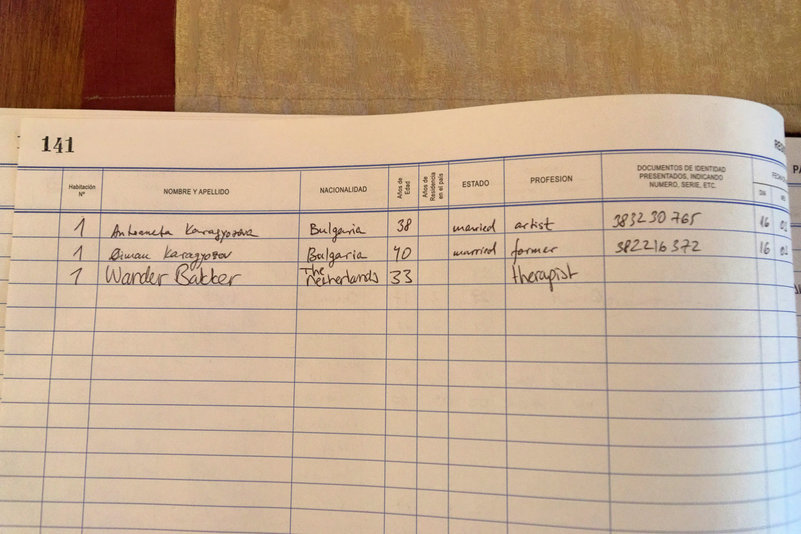 141
Habitación Nº NOMBRE Y APELLIDO NACIONALIDAD Años de Edad Años de Residencia en el país ESTADO PROFESION DOCUMENTOS DE IDENTIDAD PRESENTADOS, INDICANDO NUMERO, SERIE, ETC. DIA
1 Antoaneta Karagyozova Bulgaria 38 married artist 383230765 16
1 Karagyozov Bulgaria 40 married former 382216372 16
1 Wander Bakker The Netherlands 33 therapist